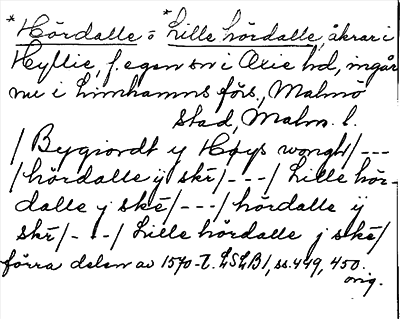 *Hördalle = *Lille hördalle, åkrar i
Hyllie, f. egen sn i Oxie hd, ingår
nu i Limhamns förs., Malmö
stad, Malm. l.
/ Bygiordt y Høys wongh / ---
/ hördalle ÿ ské / - - - / Lille hör-
dalle y ské / - - - / hördalle ÿ
ské / - - - / Lille hördalle j ské /
förra delen av 1570-t. LSLB 1, ss. 449, 450.
orig.